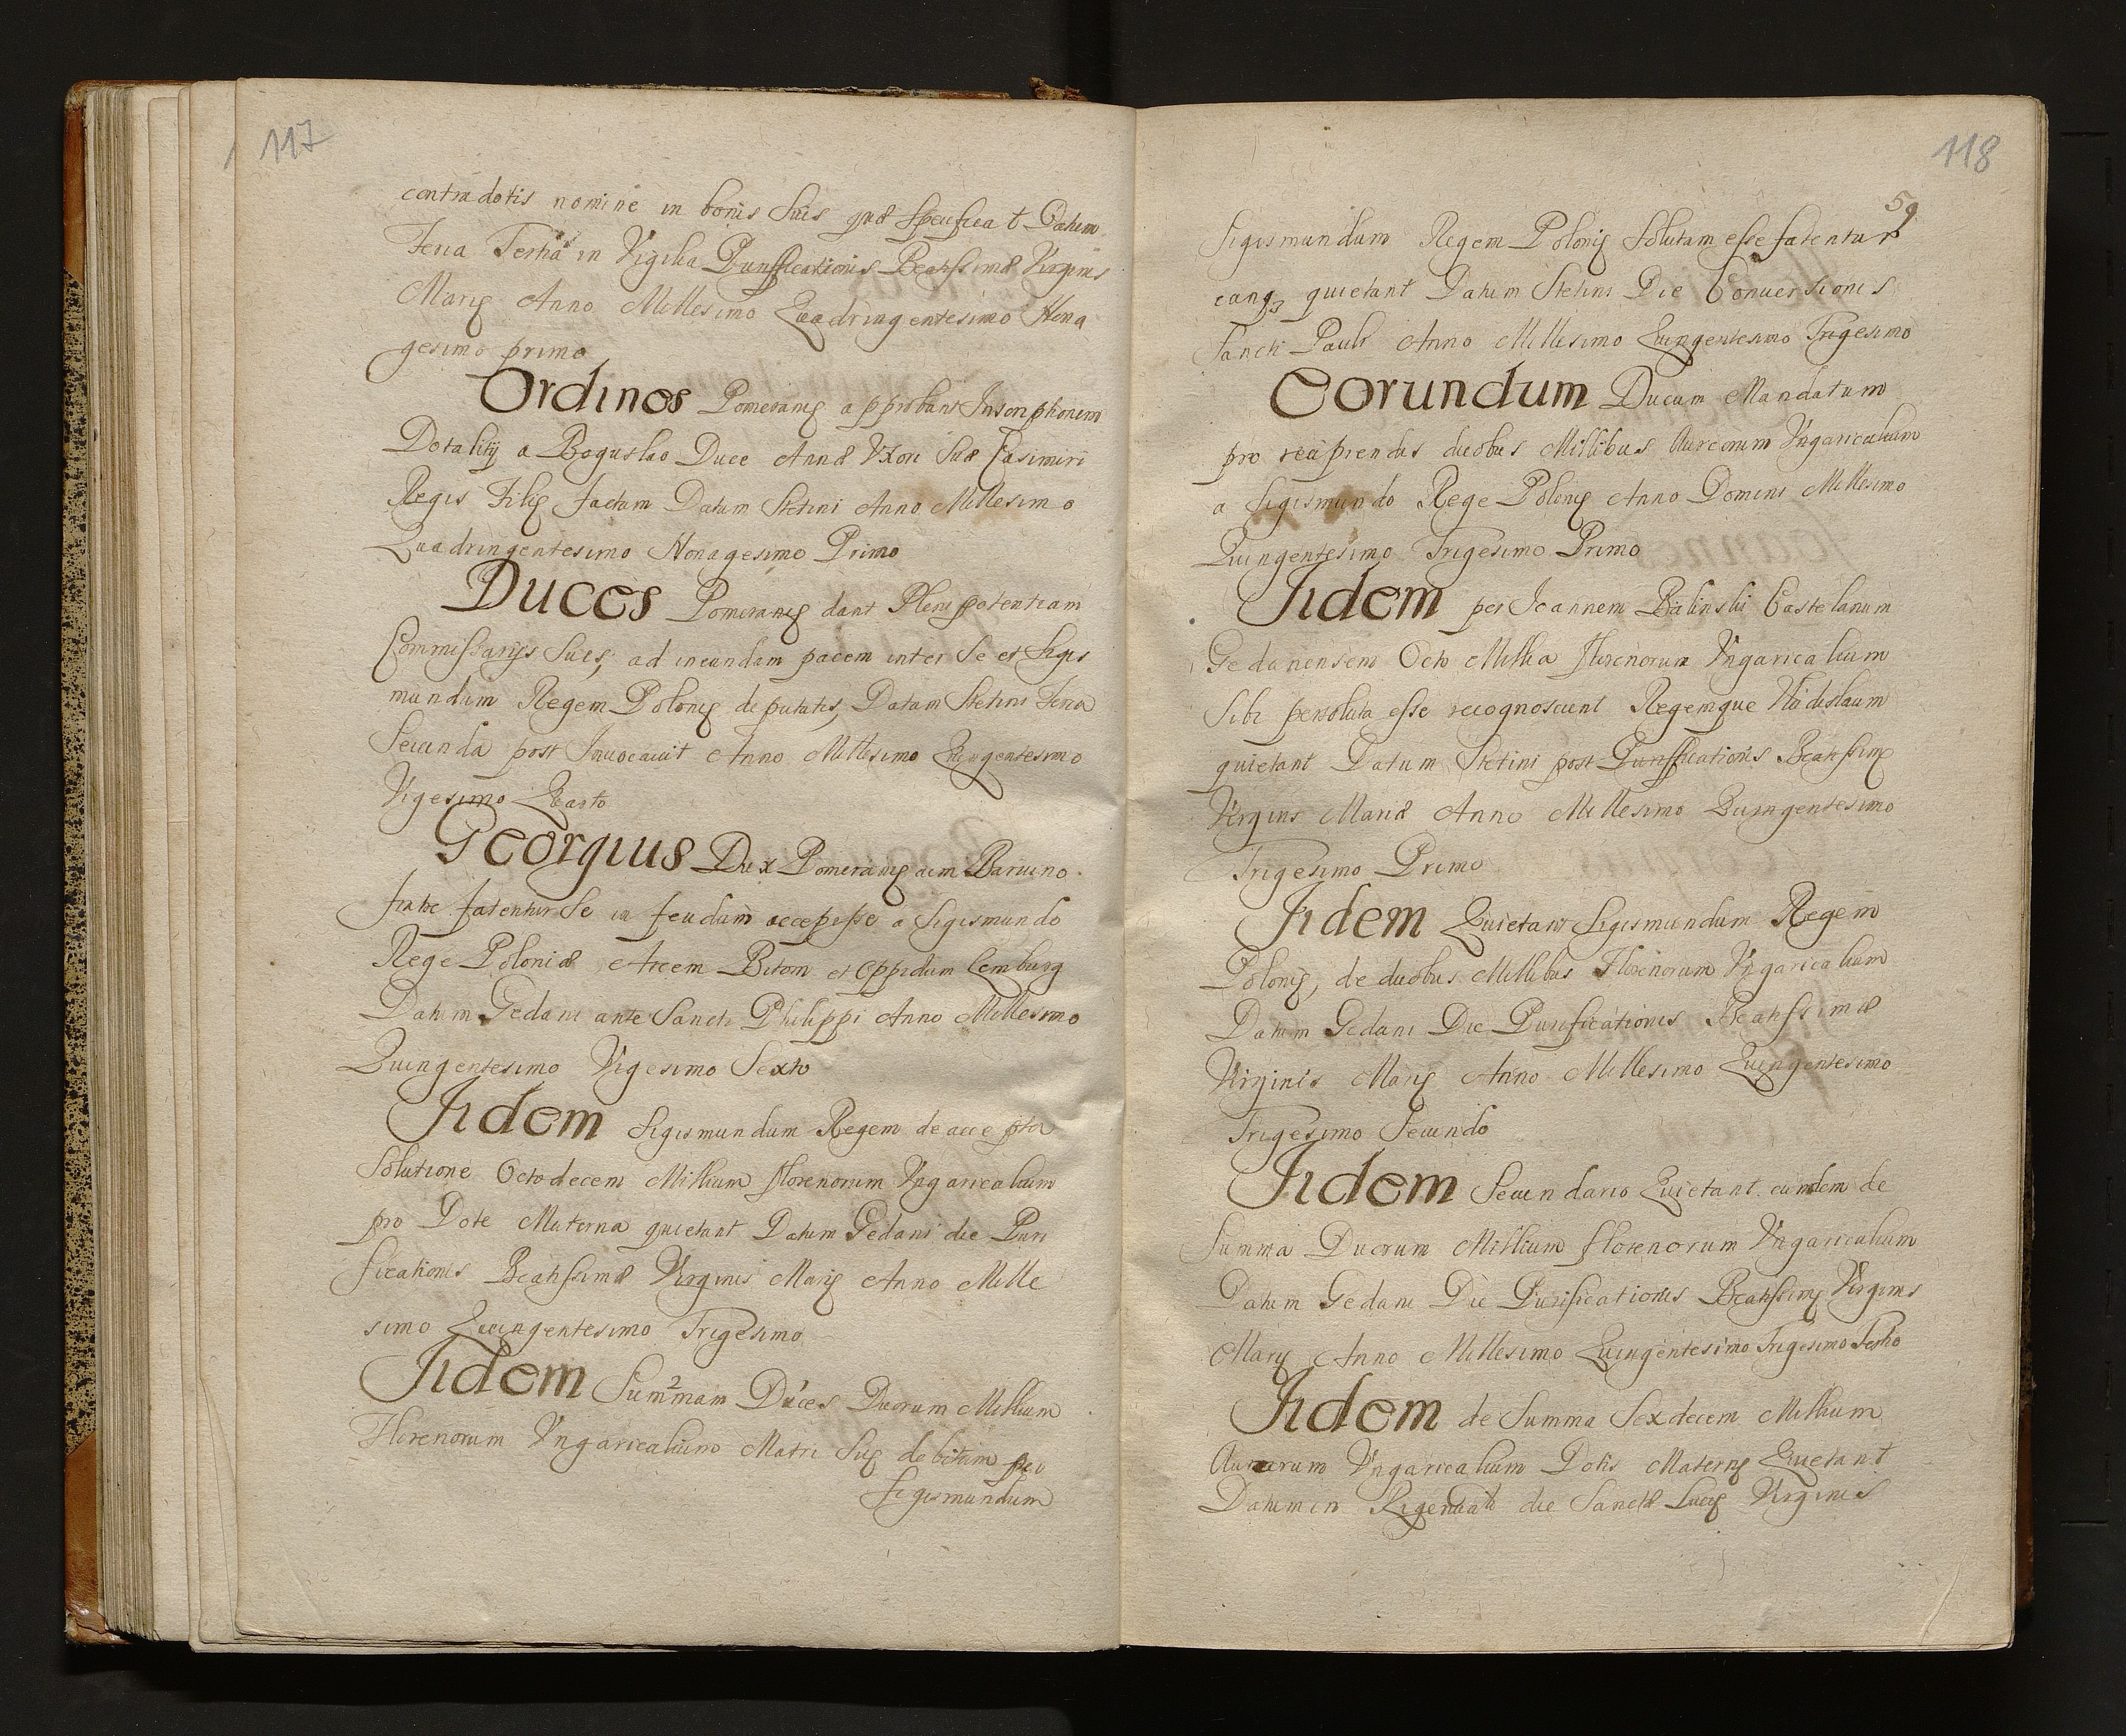 117
contradotis nomine in bonis suis quæ specificat Datum
Feria Tertia in Vigilia Purifficationis Beatissimæ Virginis
Marię Anno Millesimo Quadringentesimo Nona
gesimo primo
Ordines Pomeranię approbant Inscriptionem
Dotalitij a Boguslao Duce Annæ Uxori suæ Casimiri
Regis Filię factam Datum Stetini Anno Millesimo
Quadringentesimo Nonagesimo Primo
Duces Pomeranię dant Plenipotentiam
Commissarijs suis, ad ineundam pacem inter se et Sigis
mundum Regem Polonię deputatis, Datum Stetini Feria
Secunda post Invocavit Anno Millesimo Quingentesimo
Vigesimo Quarto
Georgius Dux Pomeranię cum Barnino
fratre fatentur se in feudum accepisse a Sigismundo
Rege Poloniæ Arcem Bitom et Oppidum Lemburg
Datum Gedani ante Sancti Philippi Anno Millesimo
Quingentesimo Vigesimo Sexto
Iidem Sigismundum Regem de accepta
Solutione Octodecem Millium florenorum Vngaricalium
pro Dote Materna quietant Datum Gedani die Puri
ficationis Beatissimæ Virginis Marię Anno Mille
simo Quingentesimo Trigesimo
Iidem Summam Duces Duorum Millium
Florenorum Vngaricalium Matri suę debitam per
Sigismundum
118
59
Sigismundum Regem Polonię Solutam esse fatentur
eanqz quietant Datum Stetini Die Conuersionis
Sancti Pauli Anno Millesimo Quingentesimo Trigesimo
Eorundum Ducum Mandatum
pro recipiendis duobus Millibus Aureorum Vngaricalium
a Sigismundo Rege Polonię Anno Domini Millesimo
Quingentesimo Trigesimo Primo
Iidem per Joannem Balinski Castelanum
Gedanensem Octo Millia Florenorum Vngaricalium
Sibi persoluta esse recognoscunt Regemque Vladislaum
quietant Datum Stetini post Purifficationis Beatissimę
Virginis Mariæ Anno Millesimo Quingentesimo
Trigesimo Primo
Iidem Quietant Sigismundum Regem
Polonię, de duobus Millibus Florenorum Vngaricalium
Datum Gedani Die Purificationis Beatissimæ
Virginis Marię Anno Millesimo Quingentesimo
Trigesimo Secundo
Iidem Secundario Quietant eundem de
Summa Duorum Millium florenorum Vngaricalium
Datum Gedani Die Purificationis Beatissimę Virginis
Marię Anno Millesimo Quingentesimo Trigesimo Tertio
Iidem de Summa Sexdecem Millium
Aureorum Vngaricalium Dotis Maternę Quietant
Datum in die Sanctæ Lucię Virginis